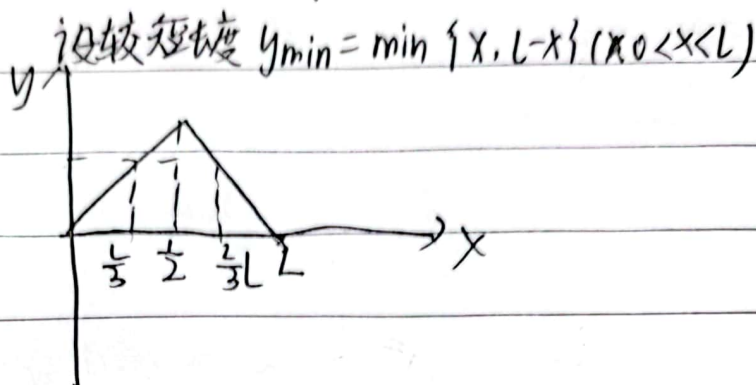 设较短长度 ymin = min {x, L-x} (x 0<x<L)
y
L/3 L/2 2/3L L x